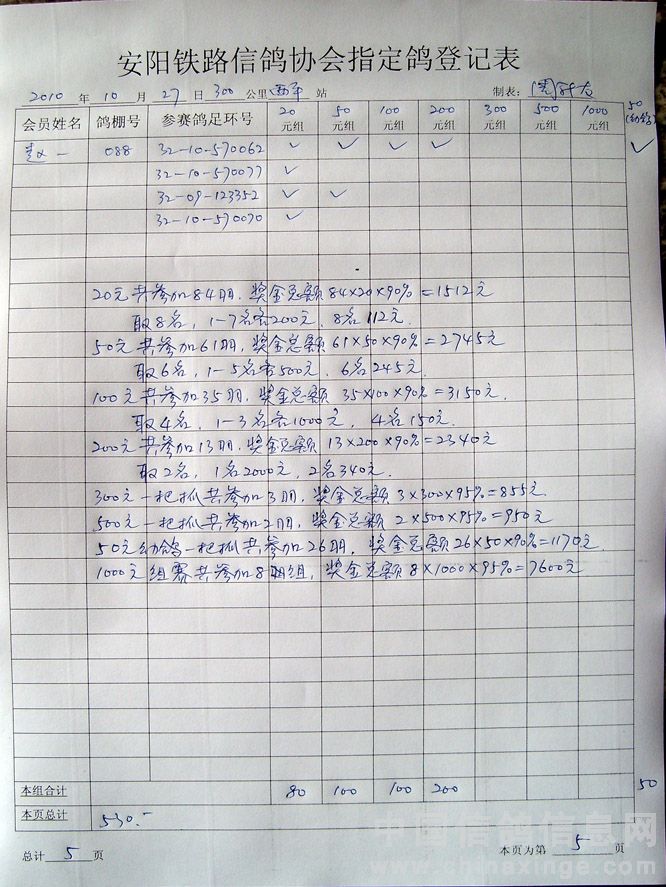 安阳铁路信鸽协会指定鸽登记表
2010 年 10 月 27 日 300 公里 西平 站 制表:
会员姓名 鸽棚号 参赛鸽足环号 20元组 50元组 100元组 200元组 300元组 500元组 1000元组 50(幼鸽)
088 32-10-570062 ✓ ✓ ✓ ✓ ✓
32-10-570077 ✓
32-09-123352 ✓ ✓
32-10-570070 ✓
20元共参加84羽,奖金总额84×20×90%=1512元
取8名,1-7名各200元,8名112元.
50元共参加61羽,奖金总额61×50×90%=2745元
取6名,1-5名各500元,6名245元.
100元共参加35羽,奖金总额35×100×90%=3150元
取4名,1-3名各1000元,4名150元.
200元共参加13羽,奖金总额13×200×90%=2340元
取2名,1名2000元,2名340元.
300元一把抓共参加3羽,奖金总额3×300×95%=855元.
500元一把抓共参加2羽,奖金总额2×500×95%=950元
50元幼鸽一把抓共参加26羽,奖金总额26×50×90%=1170元.
1000元组赛共参加8组,奖金总额8×1000×95%=7600元
本组合计 80 100 100 200 50
本页总计 530.-
总计 5 页 本页为第 5 页
中国信鸽信息网
www.chinaxinge.com